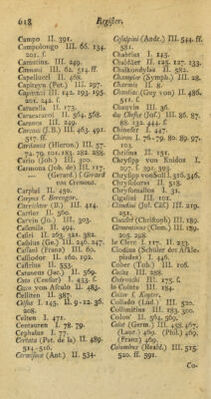 618
Register.
Campo II. 391.
Campolongo III. 66. 134.
201. f.
Camutins. III. 249.
Camuni III. 62. 514. ff.
Capellucci II. 468.
Capitzyn (Pet.) III. 297.
Capivacci III. 142. 193. 195.
201. 242. f.
Caracalla II. 173.
Caracatacci II. 564. 568.
Carmen III. 249.
Carcano (J.B.) III. 463. 491.
517. ff.
Cardanus (Hieron.) III. 57.
74. 79. 101. 183. 282. 288.
Cario (Joh.) III. 300.
Carmona (Joh. de) III. 117.
— (Gerard.) f. Gerard
von Cremona.
Carphul II. 429.
Carpus f. Berengar.
Carrichter (B.) III. 414.
Carrier II. 360.
Carvin (Jo.) III. 303.
Cascmilly II. 494.
Casiri II. 263. 284. 382.
Cassius (Ge.) III. 246. 247.
Cassani (Franz) III. 60.
Cassiodor II. 160. 192.
Castritus II. 553.
Cataneus (Jac.) II. 569.
Cato (Censor) I. 453. f.
Cauco von Asculo II. 483.
Celliten II. 387.
Celsus I. 145. II. 9-12. 36.
208.
Celten I. 471.
Centauren I. 78. 79.
Cephalus I. 77.
Cerlata (Pet. de la) II. 489.
514-516.
Cermisone (Ant.) II. 534.
Cesalpini (Andr.) III. 544. ff.
581.
Chabrias I. 145.
Chaldäer II. 125. 127. 133.
Chalkondylas II. 582.
Champier (Symph.) III. 28.
Charmis II. 8.
Chauliac (Guy von) II. 486.
511. f.
Chauvin III. 36.
du Chesne (Jos.) III. 86. 87.
88. 132. 444. f.
Chineser I. 447.
Chiron I. 76-79. 80. 89. 97.
103.
Chrisma II. 151.
Chrysipp von Knidos I.
297. f. 391. 393.
Chrysipp von Soli I. 316. 346.
Chrysoloras II. 518
Chrysomallos I. 31.
Cigalini III. 102.
Claudini (Jul. Cäs.) III. 219.
251.
Clauser (Christoph) III. 189.
Clementinus (Clem.) III. 189.
205. 298.
le Clerc I. 117. II. 233
Clodius (Schüler des Askle-
piades) I. 446.
Cober (Tob.) III. 106.
Cocles III. 288.
Codronchi III. 175. f.
le Cointe III. 184
Coiter f. Koyter.
Collado (Lud.) III. 520.
Collimitius III. 283. 300.
Colon II. 564. 569.
Colot (Germ.) III. 458. 467.
(Laur.) 469. (Phil.) 469.
(Franz) 469.
Columbus (Reald.) III. 515.
520. ff. 591.
Co-